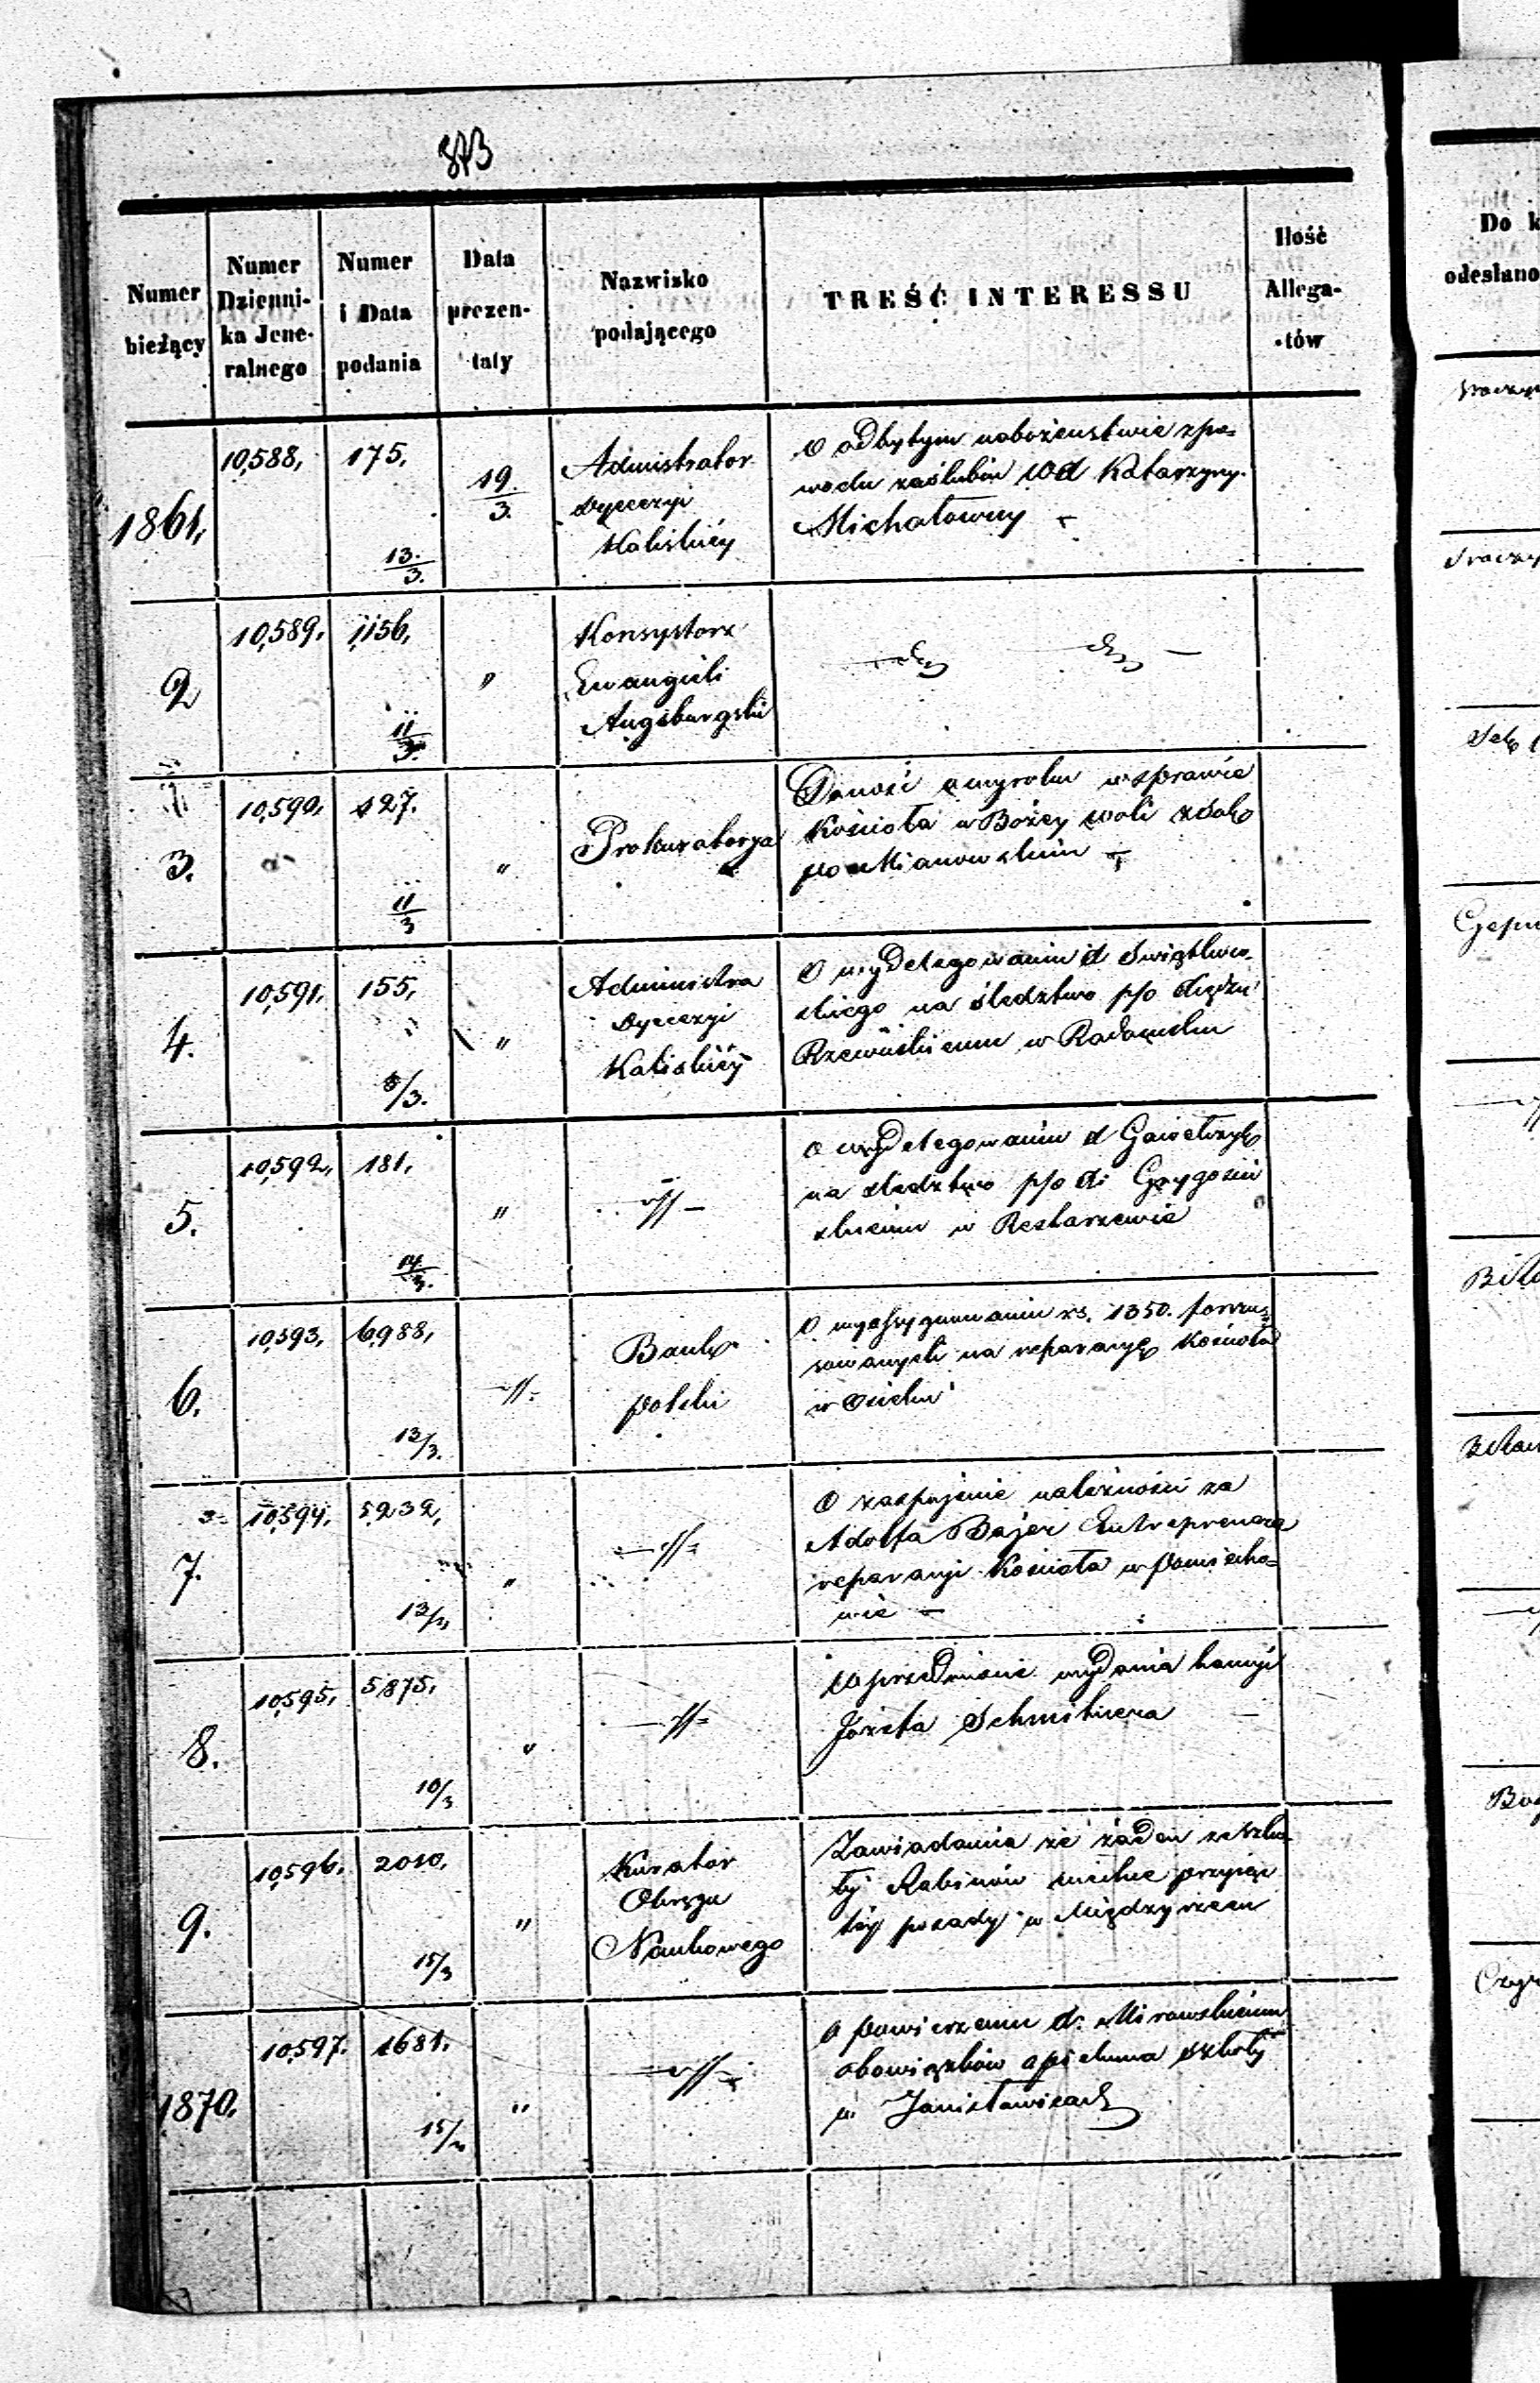 873
Numer bieżący
Numer Dzienni-ka Jene-ralnego
Numer i Data podania
Data prezen-taty
Nazwisko podającego
TREŚĆ INTERESSU
Ilość Allega-tów
Do k
odesłano
1861.
10,588,
175.
13/3.
19/3.
Administrator
Dyecezyi
Kaliskiéy
O odbytym nabożeństwie z po=
wodu zaślubin WX Katarzyny
Michałowny
2
10,589.
1,156,
11/3.
"
Konsystorz
Ewangieli
Augsburgski
3.
10,590.
127.
11/3
"
Prokuratorya
Donosi o wyroku w sprawie
Kościoła w Bożey woli
po Mianowskim
4.
10,591.
155,
8/3.
"
Administra
Dyecezyi
Kaliskiéy
O wydelegowaniu X Swiątkow-
skiego na śledztwo p/o Xiędzu
Rzewuskiemu w Radomsku
5.
10,592,
181,
14/3.
"
-//-
O wydelegowaniu X Gawełczyk
na sledztwo p/o Xi Grzygosiń
skiemu w Restarzewie
6.
10,593,
6,988,
13/3.
-//-
Bank
polski
O wyassygnowaniu rs. 1350.
na reparacyę Kościoła
w Osieku
7.
10,594.
5,232,
13/3
"
-//-
O zaspojenie należności za
Adolfa Bajer Entreprenera
reparacyi Kościoła w
wie -
8.
10,595,
5,875,
10/3
"
-//-
W przedmiocie wydania kaucyi
Józefa Schmitnera
9.
10,596.
2010.
15/3
"
Kurator
Okręgu
Naukowego
Zawiadamia że żaden ze Szko
ły Rabinów niechce przyiąć
téy posady w Międzyrzecu
1870.
10,597.
1681.
15/3
"
-//-
O powierzeniu X. Mirowskiemu
obowiązków opiekuna szkoły
w Janisławicach